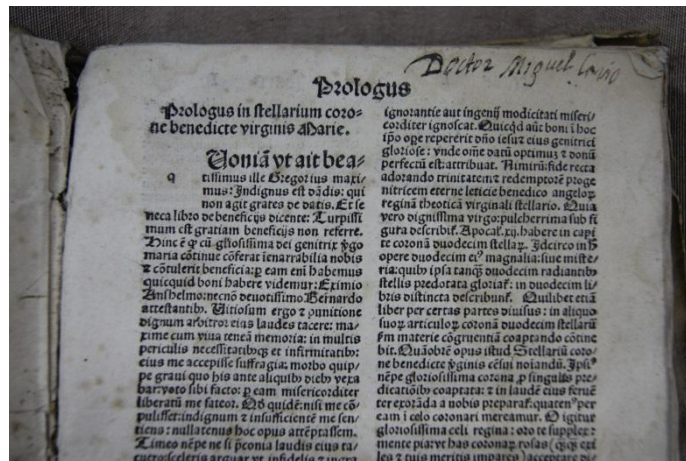 Doctor Miguel
Prologus
Prologus in stellarium coro⸗
ne benedicte virginis Marie.
Uoniã vt ait bea⸗
q tissimus ille Gregorius maxi
mus: Indignus est dãdis: qui
non agit grates de datis. Et se
neca libro de beneficijs dicente: Turpissi
mum est gratiam beneficijs non referre.
Hinc ẽ ꝙ cũ gl̃iosissima dei genitrix ṽgo
maria cõtinue cõferat inenarrabilia nobis
⁊ cõtulerit beneficia: ꝑ eam em̃ habemus
quicquid boni habere videmur: Eximio
Anshelmo: necnõ deuotissimo Bernardo
attestantibꝰ. Uitiosum ergo ⁊ punitione
dignum arbitror eius laudes tacere: ma⸗
xime cum viua teneã memoria: in multis
periculis necessitatibꝰ et infirmitatibꝰ:
eius me accepisse suffragia: morbo quip⸗
pe graui quo his ante aliquibꝰ diebꝰ vexa
bar: voto sibi facto: ꝑ eam misericorditer
liberatũ me fateor. Qđ quidẽ: nisi me cõ⸗
pulisset: indignum ⁊ insufficientẽ me sen⸗
tiens: nullatenus hoc opus attẽptassem.
Timeo nẽpe ne si p̃conia laudis eius ta⸗
infidelis ⁊ ingra
ignorantie aut ingenij modicitati miseri⸗
corditer ignoscat. Quicqd aũt boni ĩ hoc
ip̃o oꝑe repererit dño iesu ⁊ eius genitrici
gloriose: vnde om̃e datũ optimũ ⁊ donũ
perfectũ est: attribuat. Nimirũ: fide recta
adorando trinitatem: ⁊ redemptorẽ proge
nitricem eterne leticie benedico angeloꝝ
reginã theoticã virginali stellario. Quia
vero dignissima virgo: pulcherrima sub fi
gura describit̃. Apocal. xij. habere in capi
te coronã duodecim stellaꝝ. Idcirco in h̃
opere duodecim eiꝰ magnalia: siue miste⸗
ria: quibꝰ ipsa tanꝙ̃ duodecim radiantibꝰ
stellis predotata gloriat̃: in duodecim li⸗
bris distincta describunt̃. Quilibet etiã
liber per certas partes diuisus: in aliquo
suoꝝ articuloꝝ coronã duodecim stellarũ
ẽm materie cõgruentiã coaptando cõtine
bit. Quãobrẽ opus istud Stellariũ coro⸗
ne benedicte ṽginis cẽsui noiandũ. Ipsiꝰ
nẽpe gloriosissima corona ꝑ singulas pre⸗
dicatiõibꝰ coaptata: ⁊ in laudẽ eius feruẽ
ter exorãda a nobis preparat̃. quatenꝰ per
eam ĩ celo coronari mereamur. O igitur
gloriosissima celi regina: oro te supplex:
mente piaꝙ has coronaꝝ rosas
⁊ tuis meritis impares) acceptare di⸗